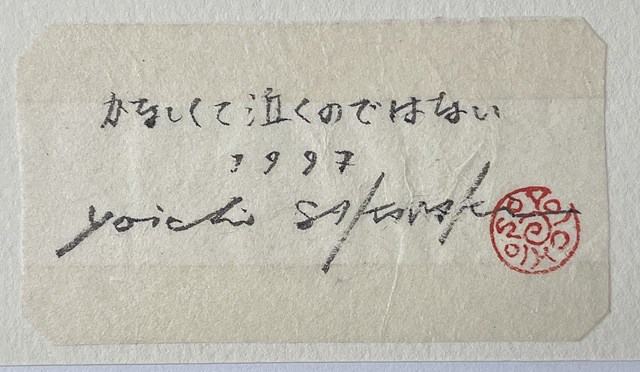 かなしくて泣くのではない
1997
yoichi